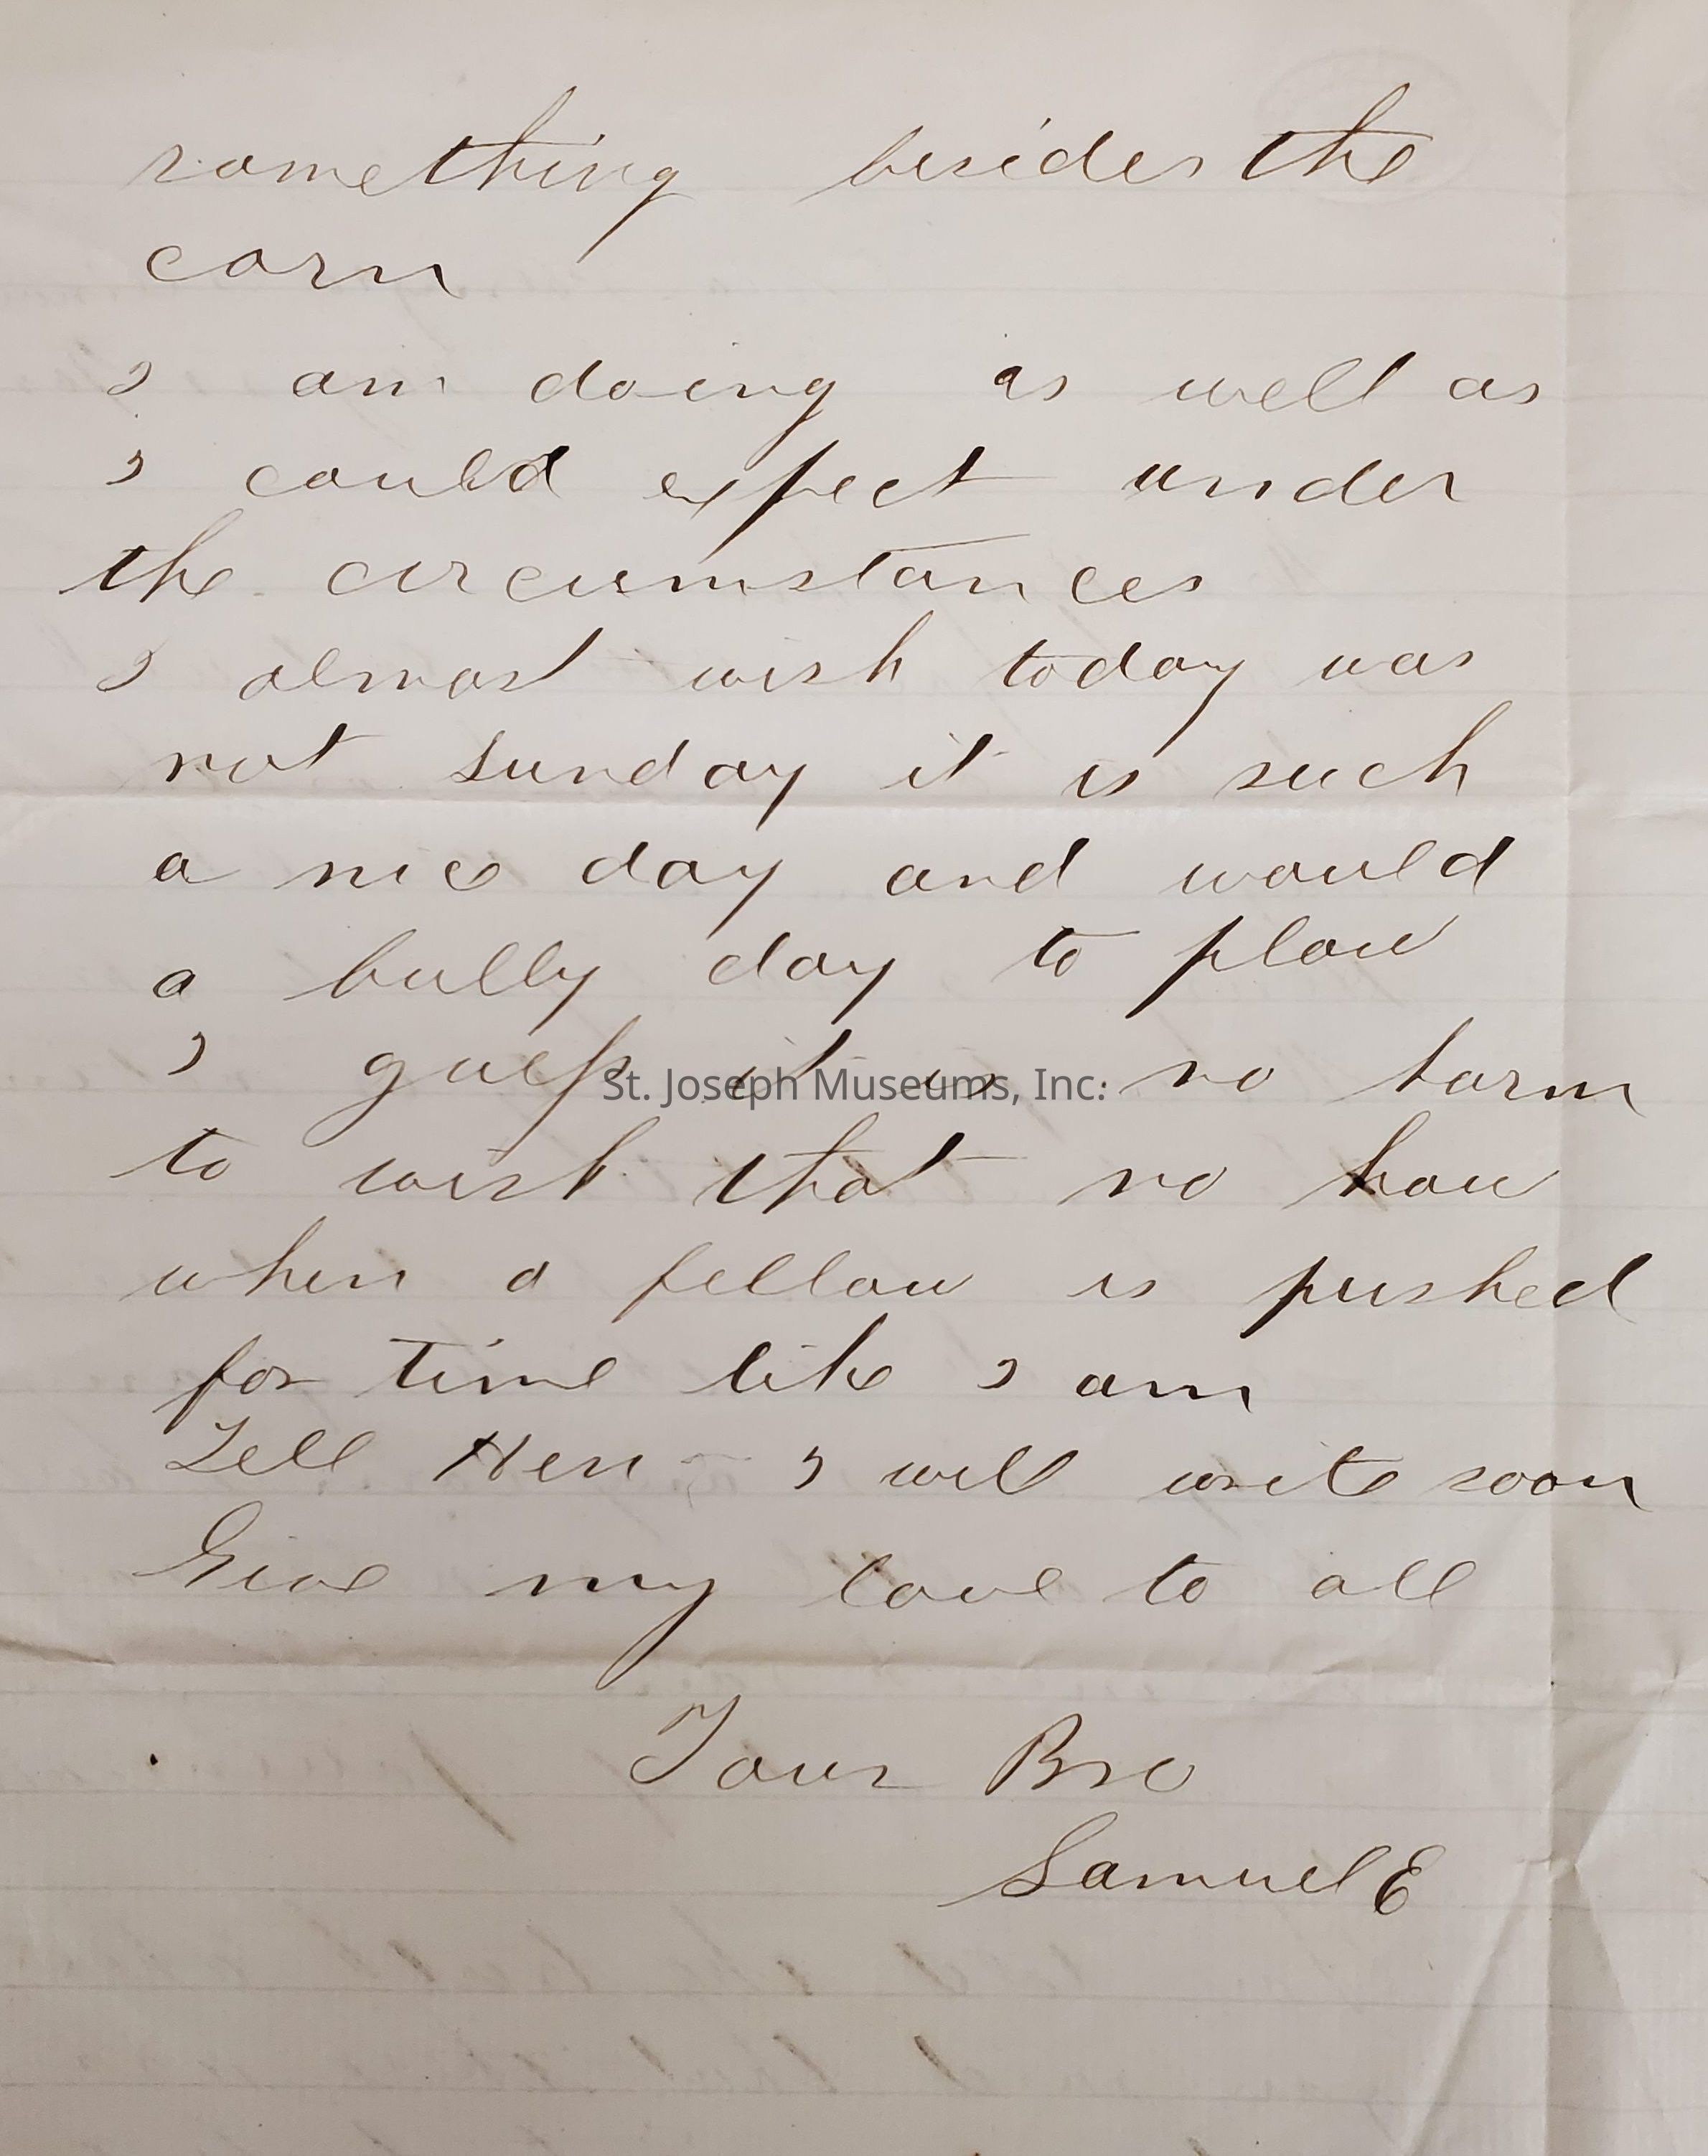 something besides the
corn
I am doing as well as
I could expect under
the circumstances
I almost wish today was
not Sunday it is such
a nice day and would
a bully day to plow
I guess it is no harm
St. Joseph Museums, Inc.
to wish that no how
when a fellow is pushed
for time like I am
Tell Hen I will write soon
Give my love to all
Your Bro
Samuel E